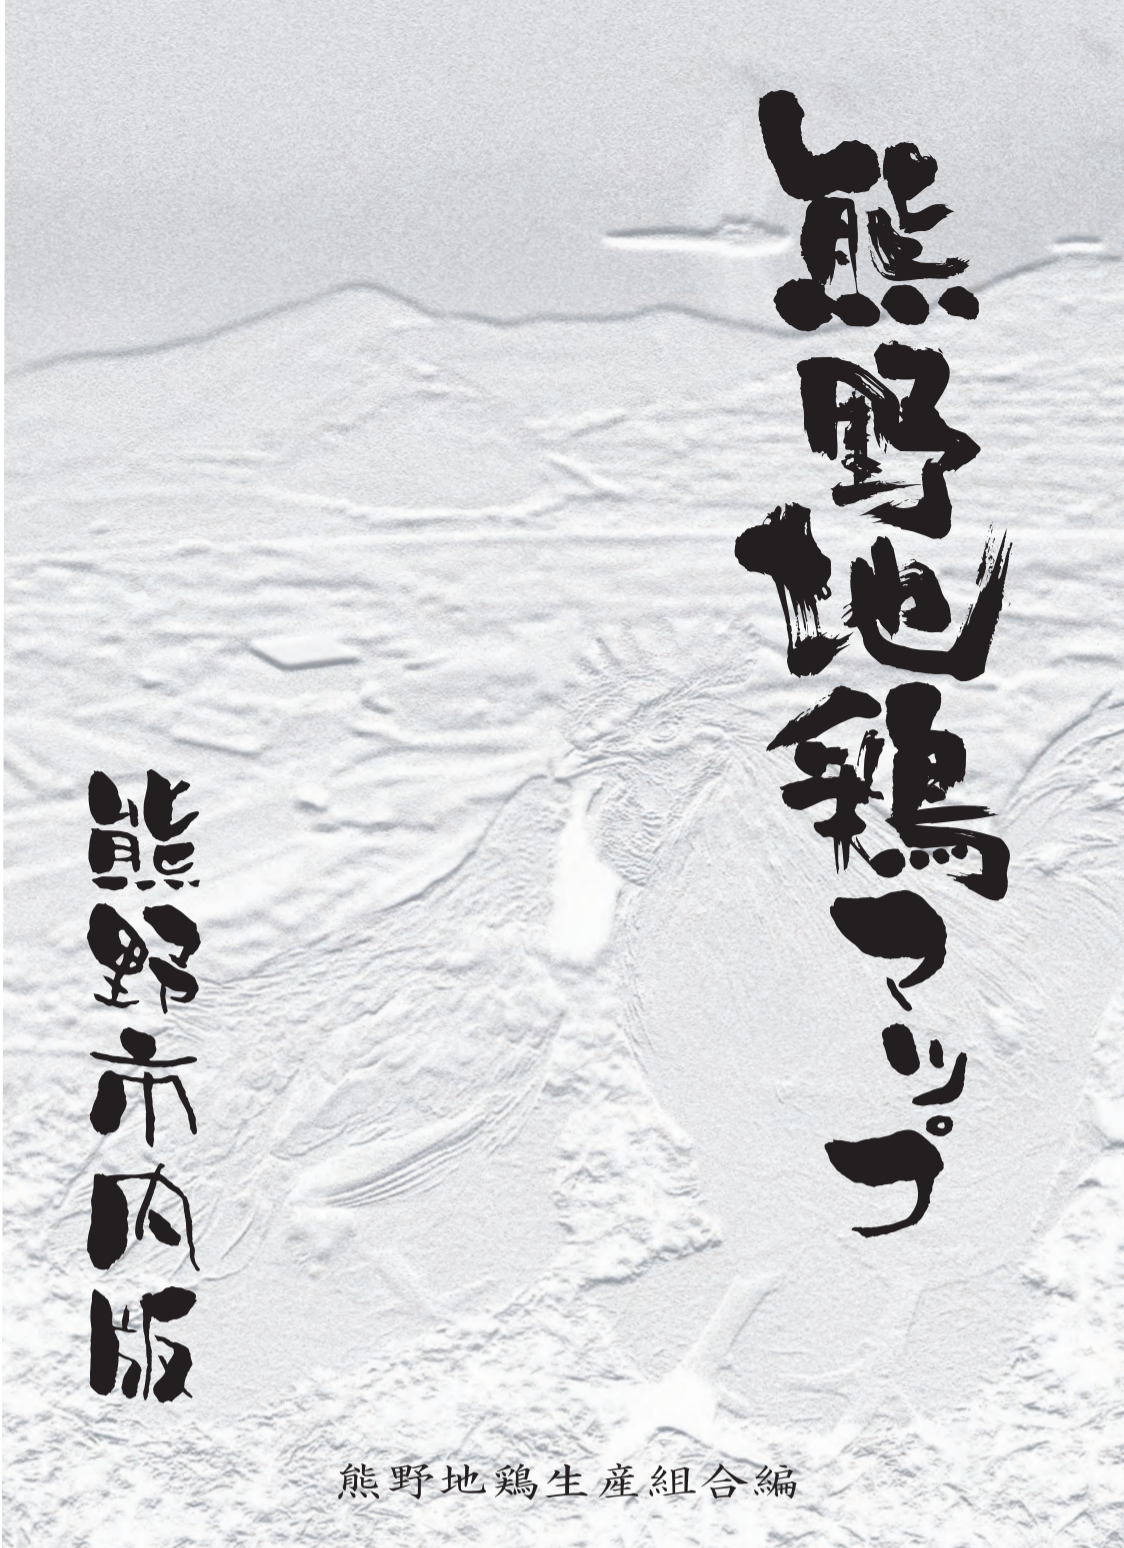 熊野地鶏マップ
熊野市内版
熊野地鶏生産組合編